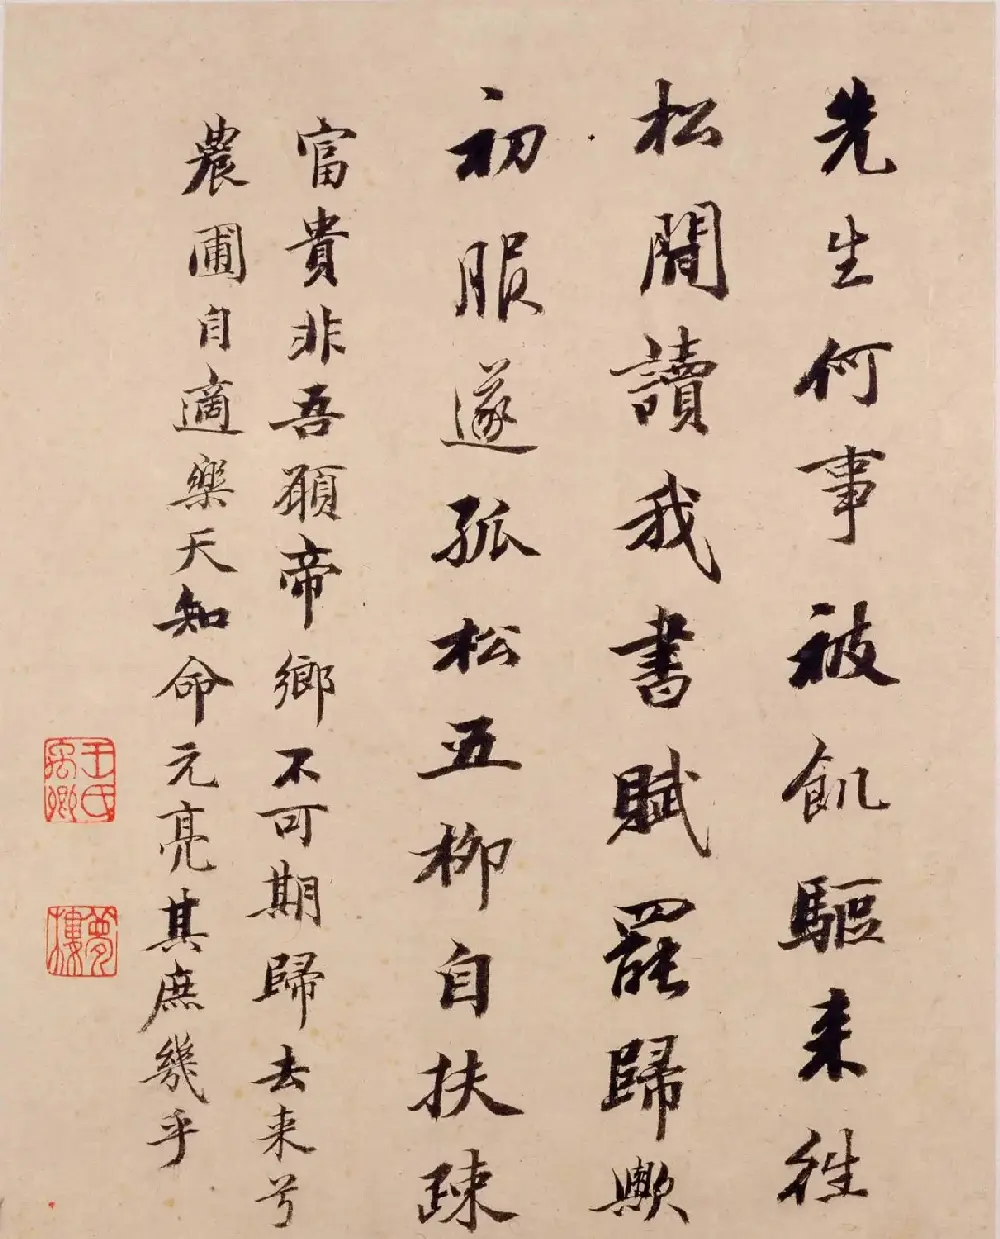 先生何事被飢驅来往
松間讀我書賦罷歸歟
初服遂孤松五柳自扶疎
富貴非吾願帝鄉不可期歸去来兮
農圃自適樂天知命元亮其庶幾乎
王氏禹卿
夢樓